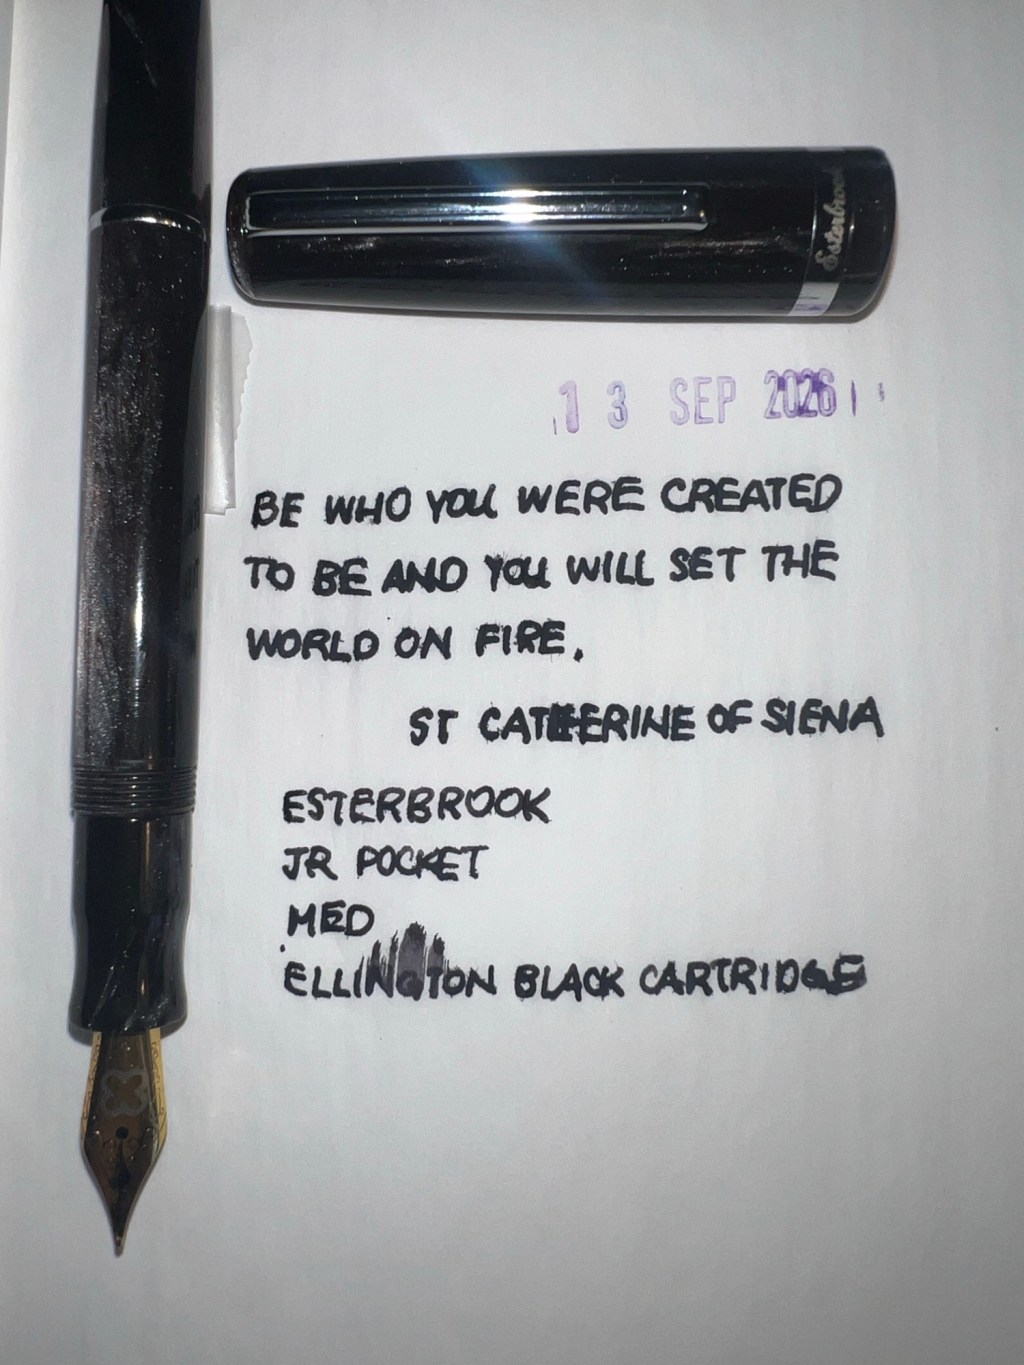 Esterbrook
13 SEP 2026
BE WHO YOU WERE CREATED
TO BE AND YOU WILL SET THE
WORLD ON FIRE.
ST CATHERINE OF SIENA
ESTERBROOK
JR POCKET
MED
ELLINGTON BLACK CARTRIDGE